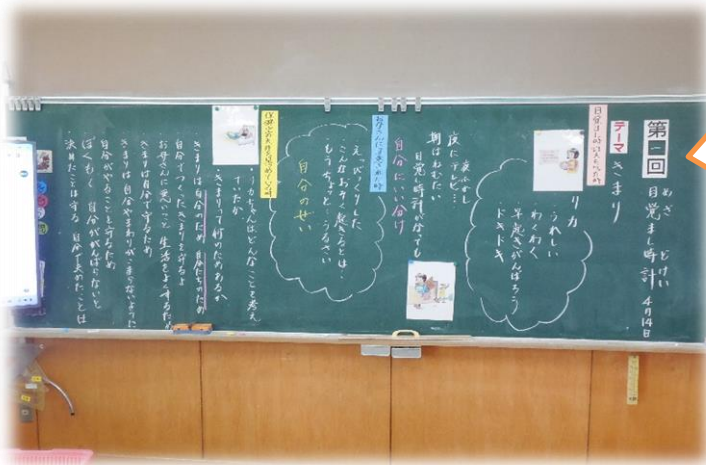 第一回
目覚まし時計 4月14日
めざ どけい
テーマ きまり
リカ
うれしい
わくわく
早起きがんばろう
ドキドキ
夜ふかし
夜にテレビ…
朝はねむたい
目覚し時計がなっても
自分にいい分け
お母さんに注意された時
えっびっくりした
こんなにおそく起きるとは、
もうちょっと…うるさい
自分のせい
・リカちゃんはどんなことを考え
ていたか
・きまりって何のためあるか
きまりは自分のため 自分たちのため
自分でつくったきまりを守るよ
お母さんに悪いこと 生活をよくするため
きまりは自分で守るため
きまりは自分やまわりがこまらないように
自分がやることを守るため
ぼくもく 自分ががんばらないと
決めたことは守る 自分で決めたことは